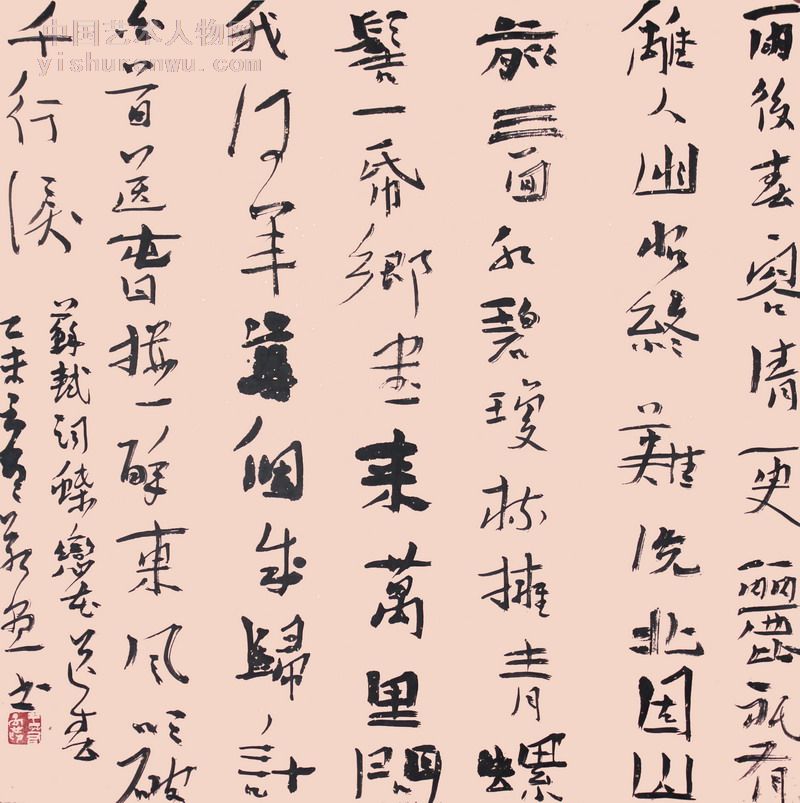 雨後春容清更麗祇有
離人幽恨終難洗北固山
前三面水碧瓊梳擁青螺
髻一帋鄉書來萬里問
我何年真個成歸計
回首送春拚一醉東風吹破
千行淚
蘇軾詞蝶戀花送春
乙未
書
中国艺术人物网
yishurenwu.com